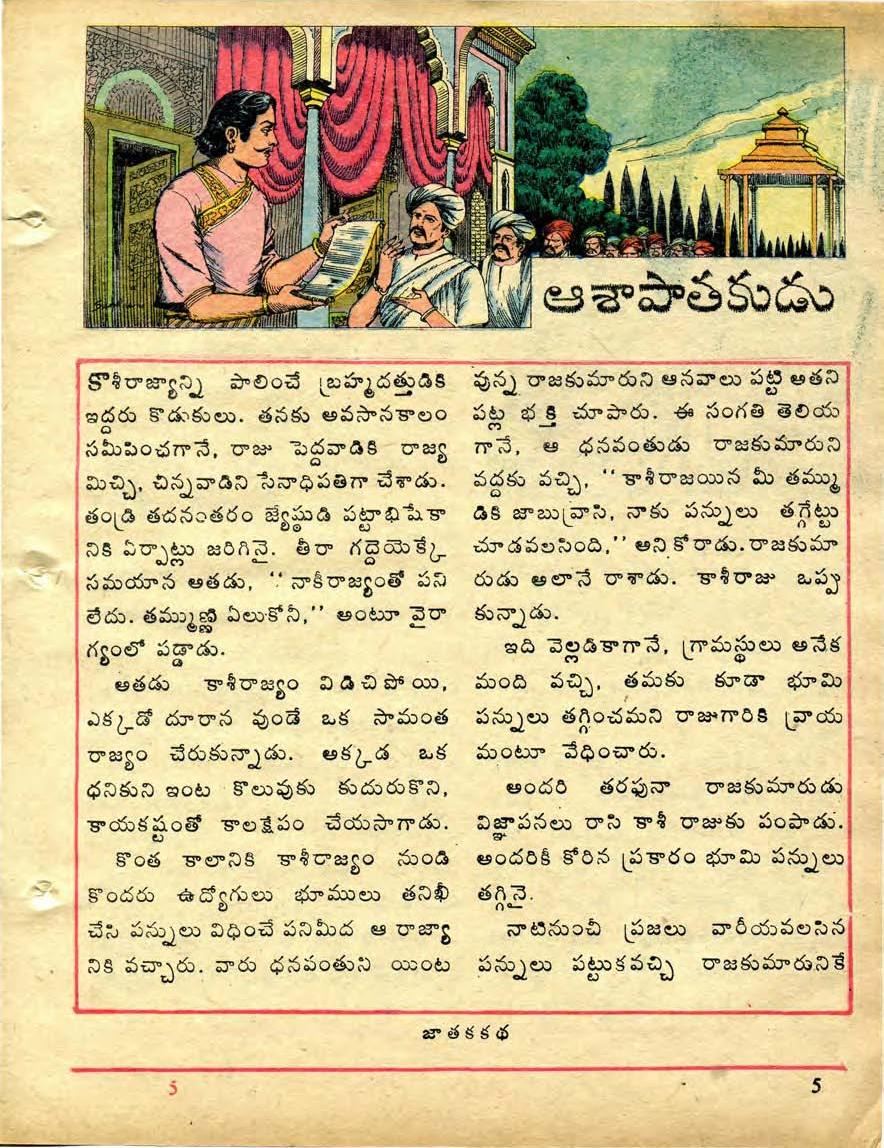 ఆశాపాతకుడు
కాశీరాజ్యాన్ని పాలించే బ్రహ్మదత్తుడికి
ఇద్దరు కొడుకులు. తనకు అవసానకాలం
సమీపించగానే, రాజు పెద్దవాడికి రాజ్య
మిచ్చి, చిన్నవాడిని సేనాధిపతిగా చేశాడు.
తండ్రి తదనంతరం జ్యేష్ఠుడి పట్టాభిషేకా
నికి ఏర్పాట్లు జరిగినై. తీరా గద్దెయెక్కే
సమయాన అతడు, "నాకీరాజ్యంతో పని
లేదు. తమ్ముణ్ణి ఏలుకోనీ," అంటూ వైరా
గ్యంలో పడ్డాడు.
అతడు కాశీరాజ్యం విడిచిపోయి,
ఎక్కడో దూరాన వుండే ఒక సామంత
రాజ్యం చేరుకున్నాడు. అక్కడ ఒక
ధనికుని ఇంట కొలువుకు కుదురుకొని,
కాయకష్టంతో కాలక్షేపం చేయసాగాడు.
కొంత కాలానికి కాశీరాజ్యం నుండి
కొందరు ఉద్యోగులు భూములు తనిఖీ
చేసి పన్నులు విధించే పనిమీద ఆ రాజ్యా
నికి వచ్చారు. వారు ధనవంతుని యింట
వున్న రాజకుమారుని ఆనవాలు పట్టి అతని
పట్ల భక్తి చూపారు. ఈ సంగతి తెలియ
గానే, ఆ ధనవంతుడు రాజకుమారుని
వద్దకు వచ్చి, "కాశీరాజయిన మీ తమ్ము
డికి జాబువ్రాసి, నాకు పన్నులు తగ్గేట్టు
చూడవలసింది," అని కోరాడు. రాజకుమా
రుడు అలానే రాశాడు. కాశీరాజు ఒప్పు
కున్నాడు.
ఇది వెల్లడికాగానే, గ్రామస్థులు అనేక
మంది వచ్చి, తమకు కూడా భూమి
పన్నులు తగ్గించమని రాజుగారికి వ్రాయ
మంటూ వేధించారు.
అందరి తరఫునా రాజకుమారుడు
విజ్ఞాపనలు రాసి కాశీ రాజుకు పంపాడు.
అందరికీ కోరిన ప్రకారం భూమి పన్నులు
తగ్గినై.
నాటినుంచీ ప్రజలు వారీయవలసిన
పన్నులు పట్టుకవచ్చి రాజకుమారునికే
జాతకకథ
5
5